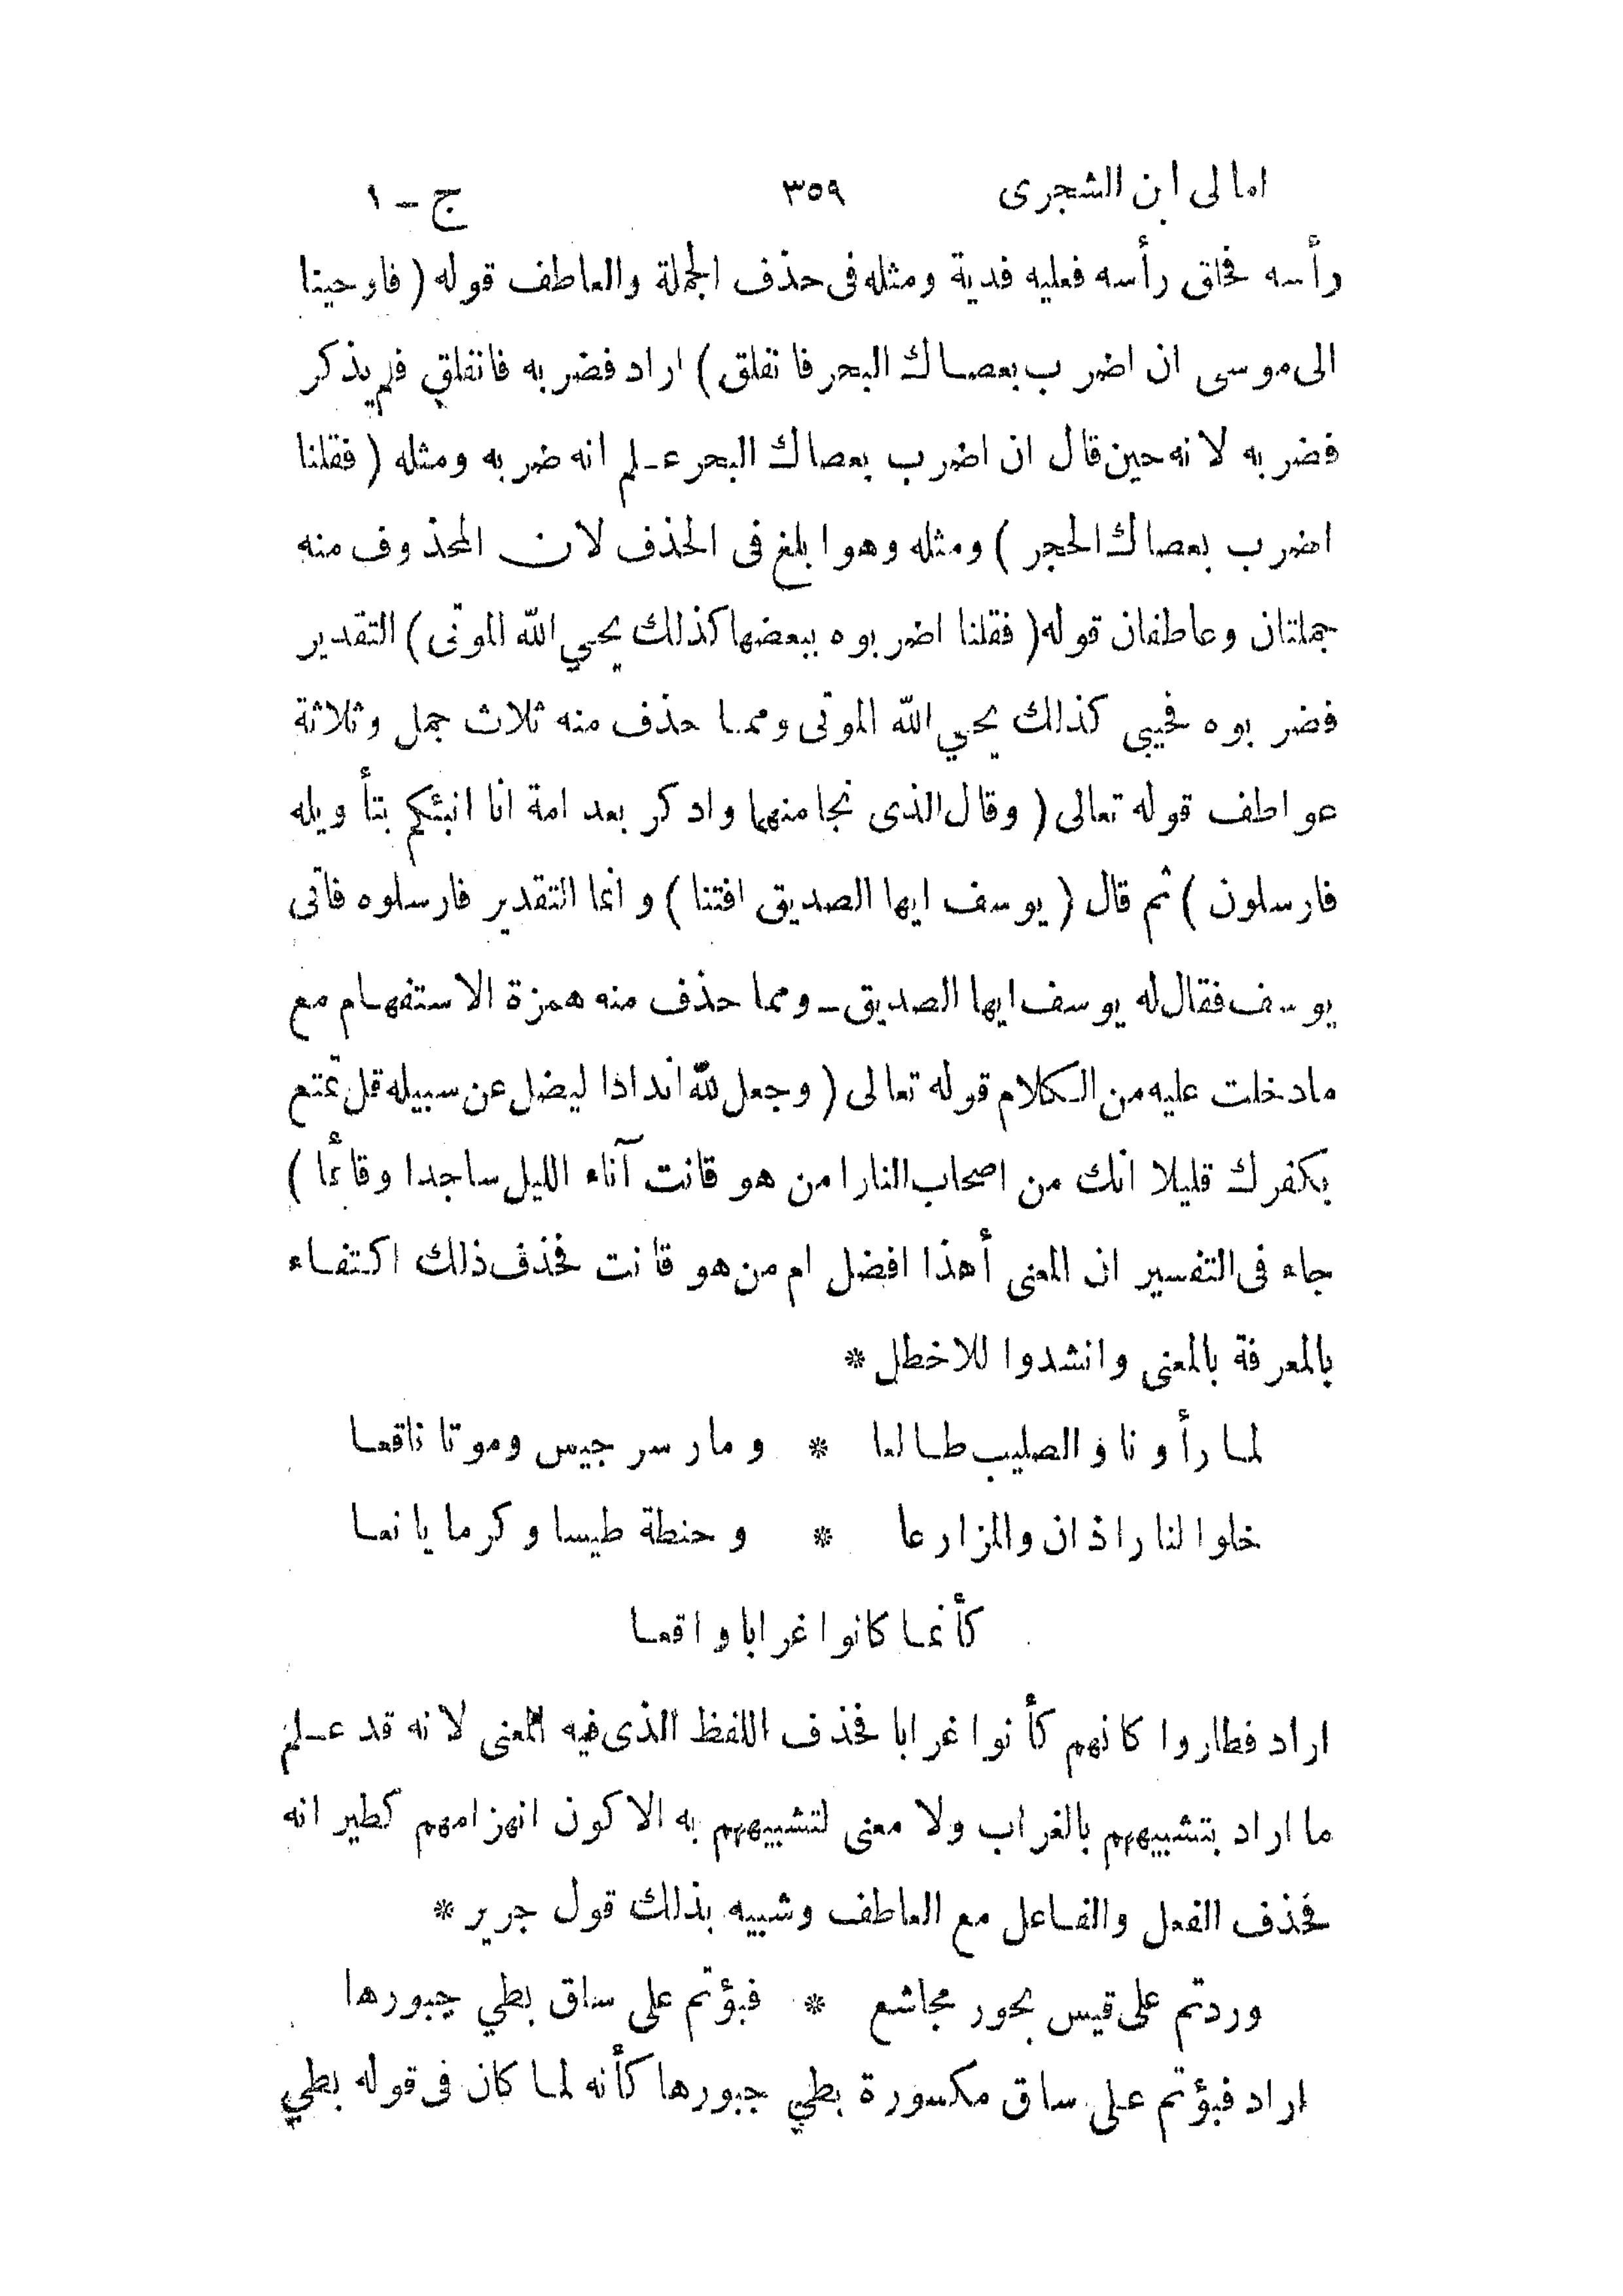 امالى ابن الشجرى ٣٥٩ ج – ١
رأسه فحلق رأسه فعليه فدية ومثله فى حذف الجملة والعاطف قوله ( فاوحينا
الى موسى ان اضرب بعصاك البحر فانفلق ) اراد فضربه فانفلق فلم يذكر
فضربه لانه حين قال ان اضرب بعصاك البحر علم انه ضربه ومثله ( فقلنا
اضرب بعصاك الحجر ) ومثله وهو ابلغ فى الحذف لان المحذوف منه
جملتان وعاطفان قوله ( فقلنا اضربوه ببعضها كذلك يحيي الله الموتى ) التقدير
فضربوه فحيي كذلك يحيي الله الموتى ومما حذف منه ثلاث جمل وثلاثة
عواطف قوله تعالى ( وقال الذى نجا منهما وادكر بعد امة انا انبئكم بتأويله
فارسلون ) ثم قال ( يوسف ايها الصديق افتنا ) وانما التقدير فارسلوه فاتى
يوسف فقال له يوسف ايها الصديق – ومما حذف منه همزة الاستفهام مع
مادخلت عليه من الكلام قوله تعالى ( وجعل لله اندادا ليضل عن سبيله قل تمتع
بكفرك قليلا انك من اصحاب النار امن هو قانت آناء الليل ساجدا وقائما )
جاء فى التفسير ان المعنى أهذا افضل ام من هو قانت فحذف ذلك اكتفاء
بالمعرفة بالمعنى وانشدوا للاخطل *
لما رأونا والصليب طالعا * ومارسرجيس وموتا ناقعا
خلوا لنا راذان والمزارعا * وحنطة طيسا وكرما يانعا
كأنما كانوا غرابا واقعا
اراد فطاروا كانهم كأنوا غرابا فحذف اللفظ الذى فيه المعنى لانه قد علم
ما اراد بتشبيههم بالغراب ولا معنى لتشبيههم به الا كون انهزامهم كطيرانه
فحذف الفعل والفاعل مع العاطف وشبيه بذلك قول جرير *
وردتم على قيس بحور مجاشع * فبؤتم على ساق بطي جبورها
اراد فبؤتم على ساق مكسورة بطي جبورها كأنه لما كان فى قوله بطي